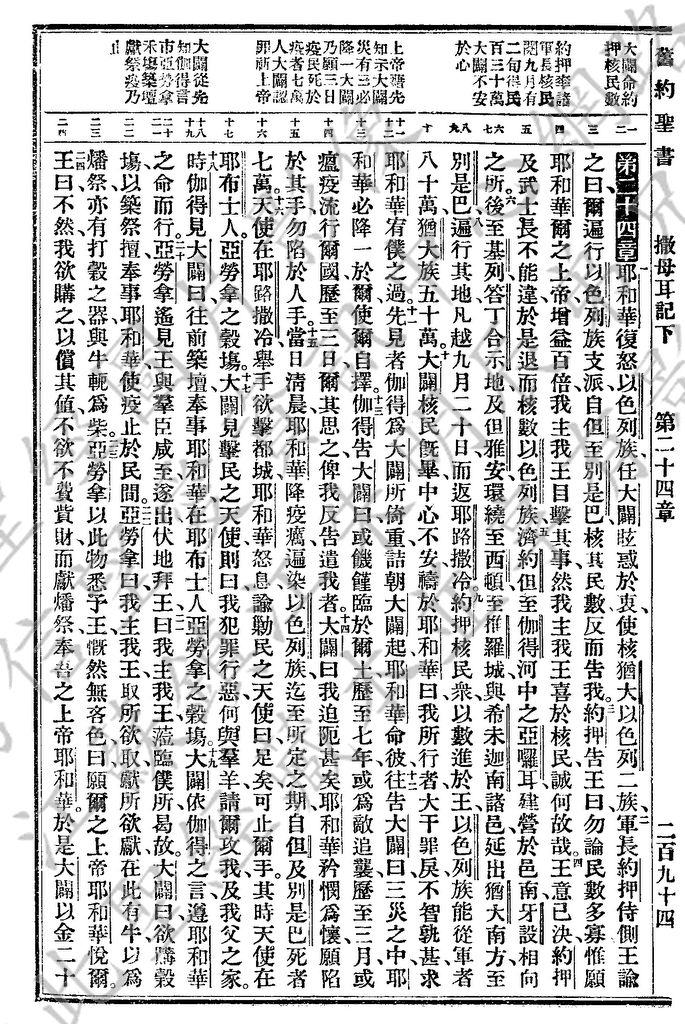 舊約聖書 撒母耳記下 第二十四章 二百九十四
大闢命約
押核民數
約押率諸
軍長核民
閱九月有
二旬得民
百三十萬
大闢不安
於心
上帝譴先
知示大闢
災有三必
降一大闢
乃願三日
疫民死於
疫者七萬
人大闢認
罪祈上帝
大闢從先
知伽得言
市亞勞拿
禾塲築壇
獻祭疫乃
止
第二十四章耶和華復怒以色列族任大闢眩惑於衷使核猶大以色列二族軍長約押侍側王諭
之曰爾遍行以色列族支派自但至別是巴核其民數反而告我約押告王曰勿論民數多寡惟願
耶和華爾之上帝增益百倍我主我王目擊其事然我主我王喜於核民誠何故哉王意已決約押
及武士長不能違於是退而核數以色列族濟約但至伽得河中之亞囉耳建營於邑南牙設相向
之所後至基列答丁合示地及但雅安環繞至西頓至推羅城與希未迦南諸邑延出猶大南方至
別是巴遍行其地凡越九月二十日而返耶路撒冷約押核民衆以數進於王以色列族能從軍者
八十萬猶大族五十萬大闢核民旣畢中心不安禱於耶和華曰我所行者大干罪戾不智孰甚求
耶和華宥僕之過先見者伽得爲大闢所倚重詰朝大闢起耶和華命彼往告大闢曰三災之中耶
和華必降一於爾使爾自擇伽得告大闢曰或饑饉臨於爾土歷至七年或爲敵追襲歷至三月或
瘟疫流行爾國歷至三日爾其思之俾我反告遣我者大闢曰我迫阨甚矣耶和華矜憫爲懷願陷
於其手勿陷於人手當日清晨耶和華降疫癘遍染以色列族迄至所定之期自但及別是巴死者
七萬天使在耶路撒冷舉手欲擊都城耶和華怒息諭勦民之天使曰足矣可止爾手其時天使在
耶布士人亞勞拿之穀塲大闢見擊民之天使則曰我犯罪行惡何與羣羊請爾攻我及我父之家
時伽得見大闢曰往前築壇奉事耶和華在耶布士人亞勞拿之穀塲大闢依伽得之言遵耶和華
之命而行亞勞拿遙見王與羣臣咸至遂出伏地拜王曰我主我王蒞臨僕所曷故大闢曰欲購穀
塲以築祭壇奉事耶和華使疫止於民間亞勞拿曰我主我王取所欲取獻所欲獻在此有牛以爲
燔祭亦有打穀之器與牛軛爲柴亞勞拿以此物悉予王慨然無吝色曰願爾之上帝耶和華悅爾
王曰不然我欲購之以償其值不欲不費貲財而獻燔祭奉吾之上帝耶和華於是大闢以金二十